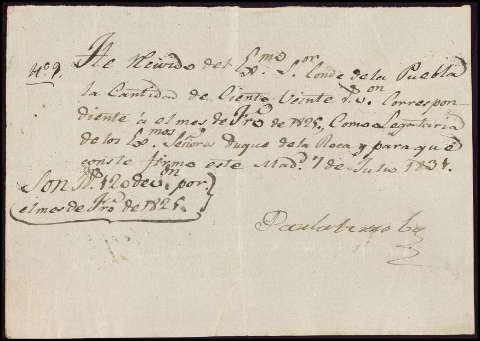 Nº 9. He Recivido del Exmo Sor. Conde de la Puebla
la Cantidad de Ciento Veinte Rs. von Correspon-
diente à el mes de Fro. de 1825, Como Legataria
de los Exmos Señores Duque de la Roca y para que
conste firmo este Madd. 7 de Julio 1831.
Son Rs. 120 de von por
el mes de Fro. de 1825.